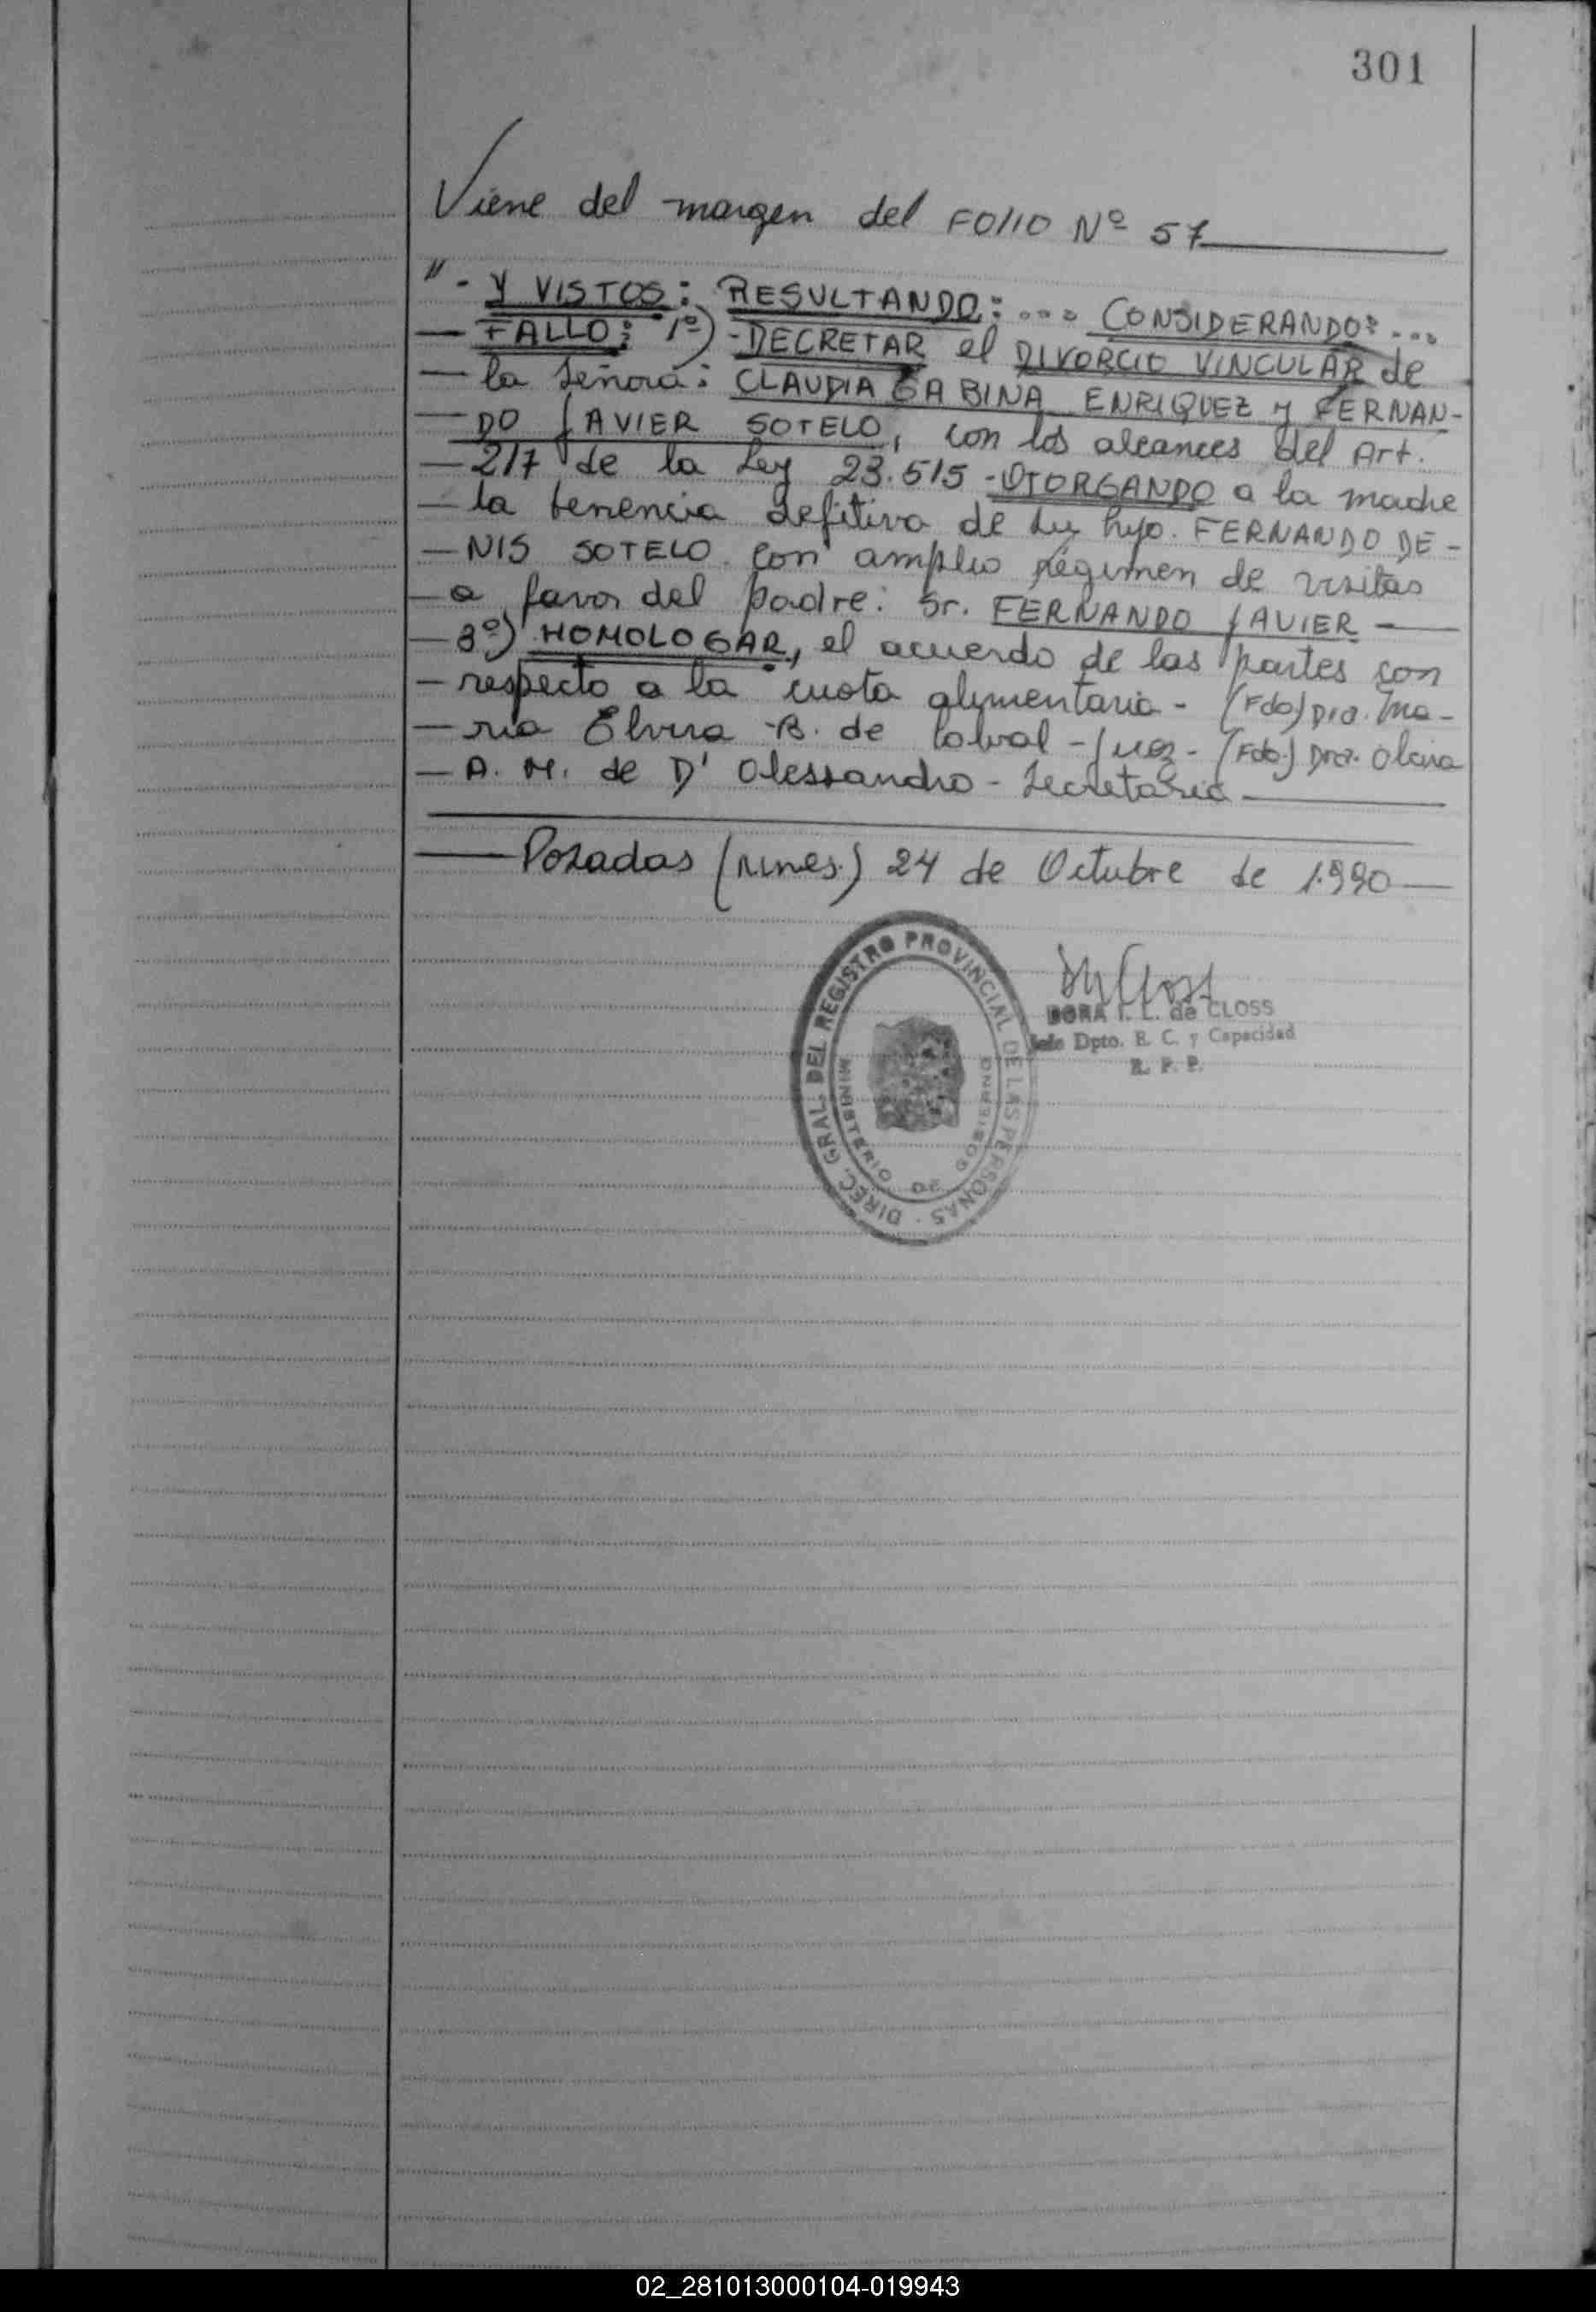 301
Viene del margen del FOLIO Nº 57
"- Y VISTOS: RESULTANDO: ... CONSIDERANDO: ...
— FALLO: 1º) - DECRETAR el DIVORCIO VINCULAR de
— la Señora: CLAUDIA GABINA ENRIQUEZ y FERNAN-
— DO JAVIER SOTELO, con los alcances del Art.
— 217 de la Ley 23.515 - OTORGANDO a la madre
— la tenencia defitiva de su hijo. FERNANDO DE-
— NIS SOTELO. con amplio régimen de visitas
— a favor del padre: Sr. FERNANDO JAVIER —
— 3º) HOMOLOGAR, el acuerdo de las partes con
— respecto a la cuota alimentaria - (Fdo) Dra. Ma-
— ria Elvira B. de - Juez - (Fdo.) Dra.
— A. M. de D' Alessandro - Secretaria
— Posadas (Mnes.) 24 de Octubre de 1.990 —
DIREC. GRAL. DEL REGISTRO PROVINCIAL DE LAS PERSONAS
MINISTERIO DE GOBIERNO
DORA I. L. de CLOSS
Jefe Dpto. E. C. y Capacidad
R. P. P.
02_281013000104-019943